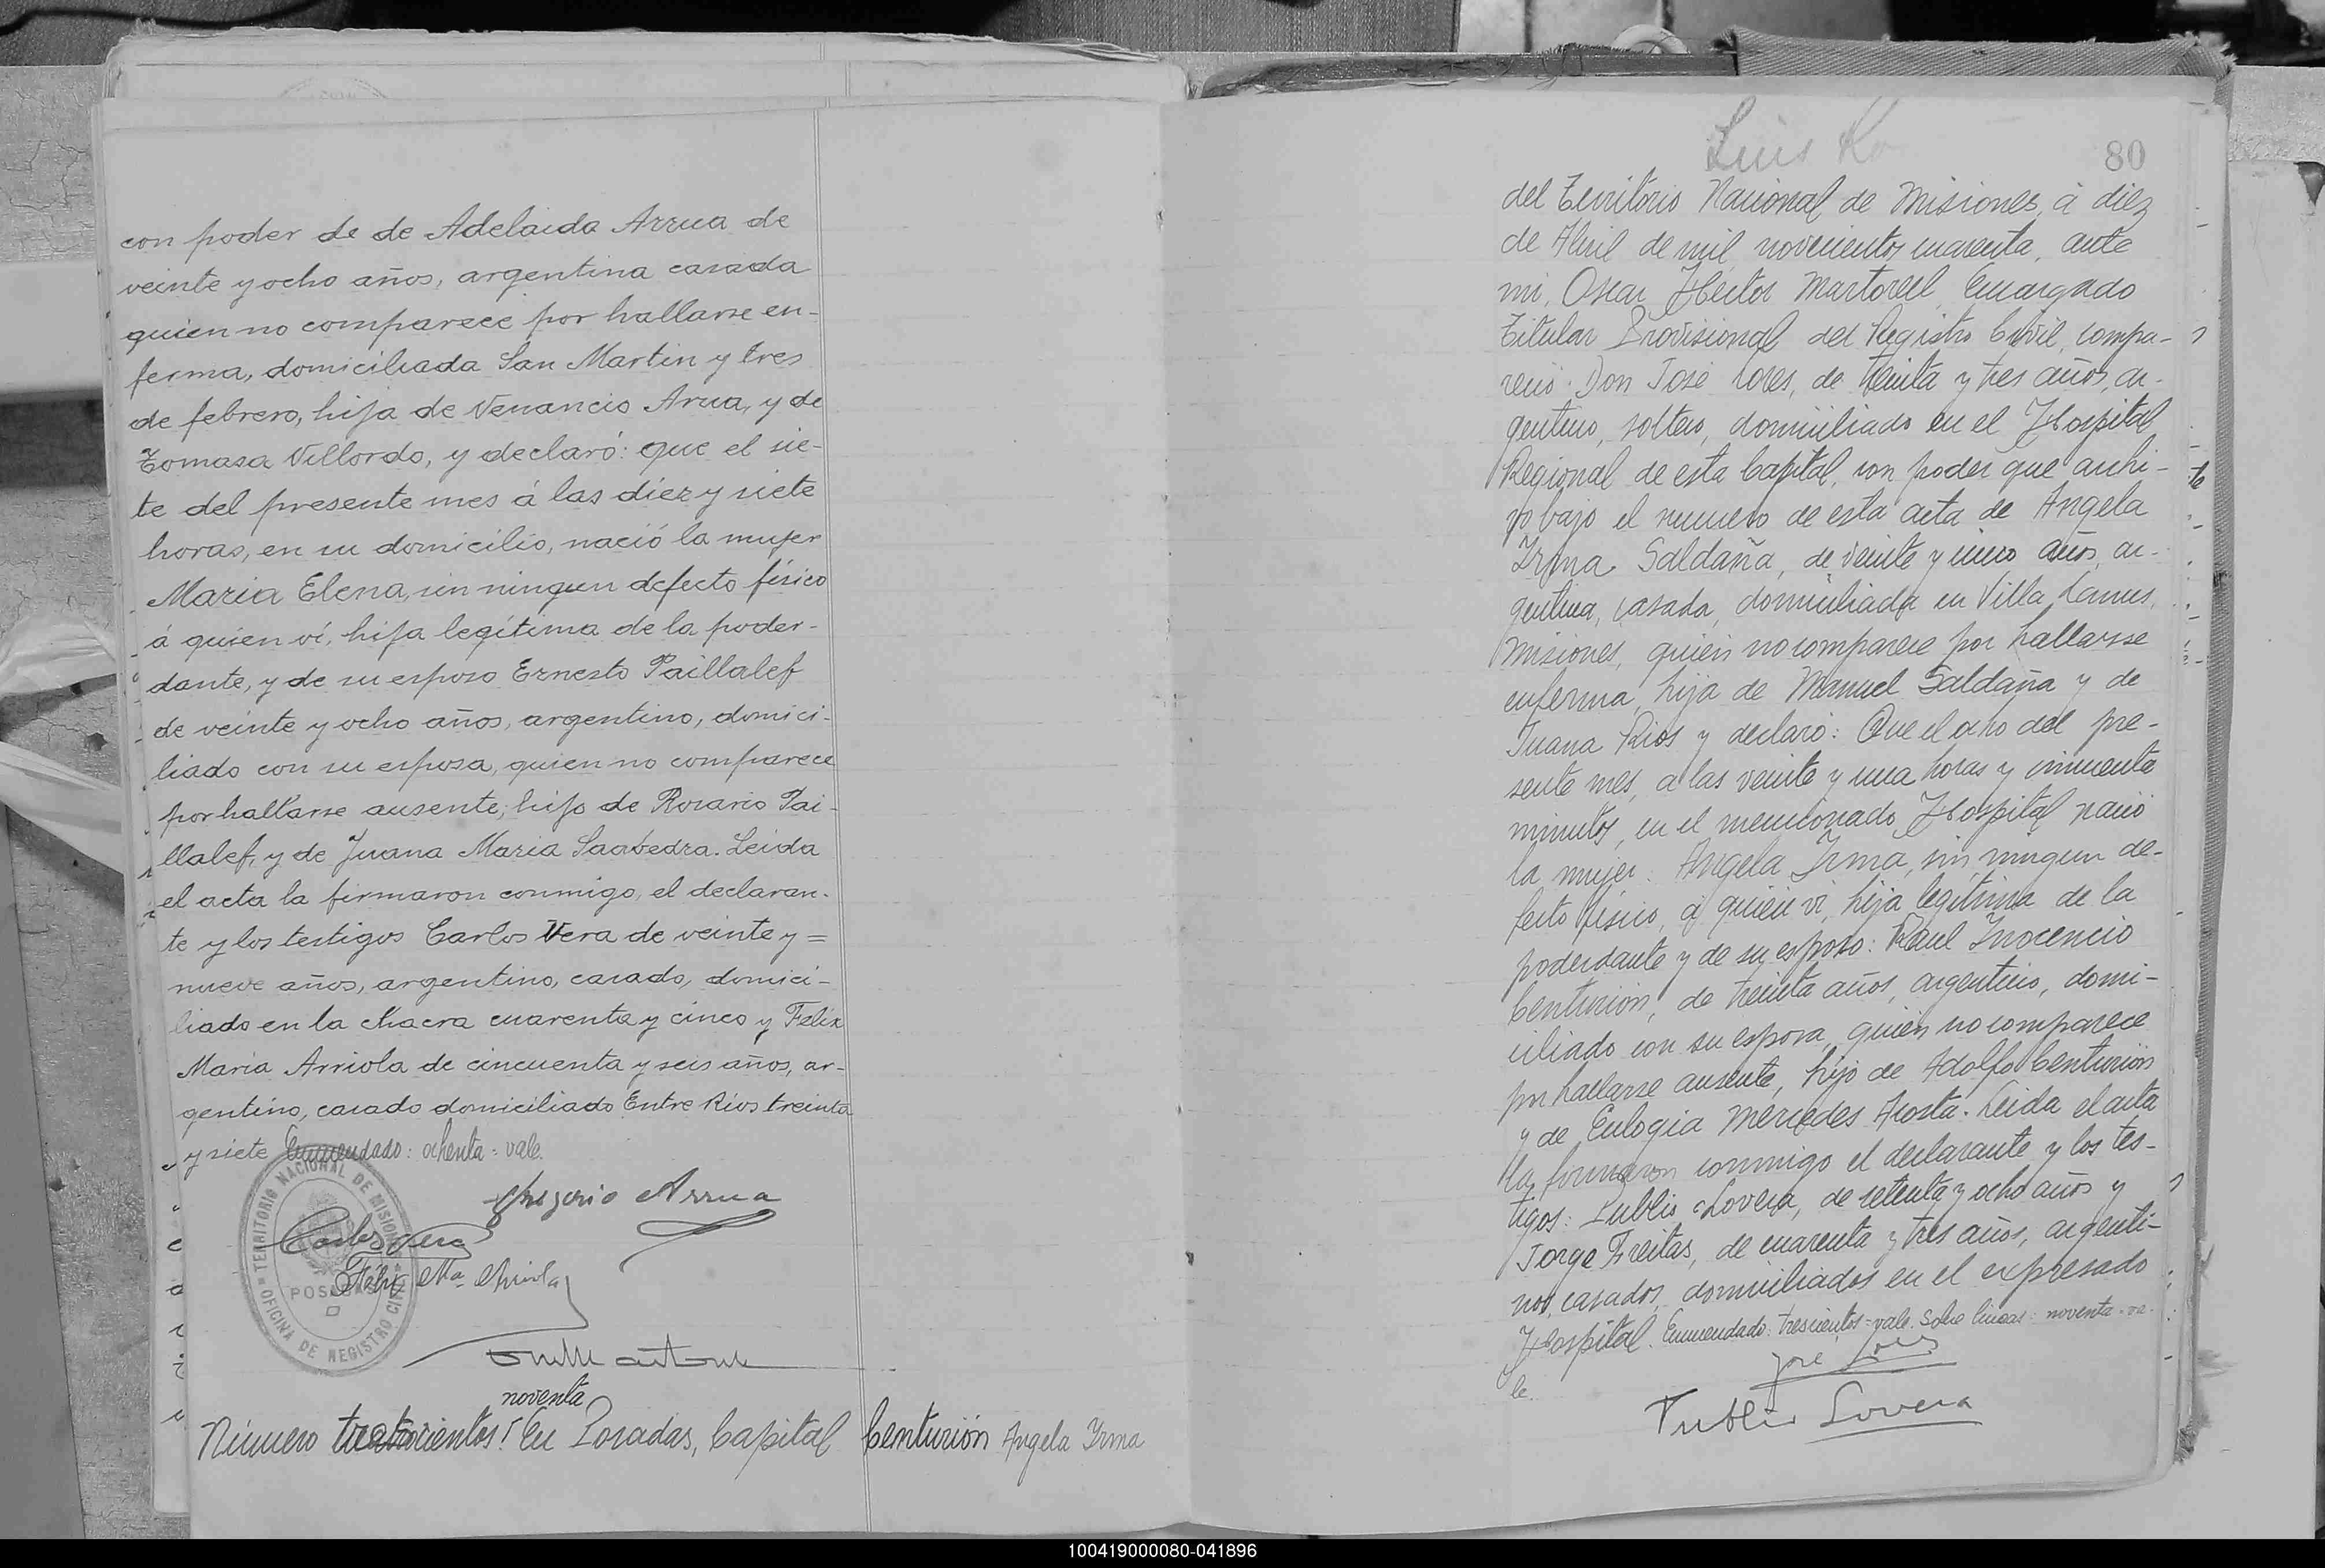 con poder de de Adelaida Arrua de
veinte y ocho años, argentina casada
quien no comparece por hallarse en-
ferma, domiciliada San Martin y tres
de febrero, hija de Venancio Arua, y de
Tomasa Villordo, y declaró: que el sie-
te del presente mes á las diez y siete
horas, en su domicilio, nació la mujer
Maria Elena, sin ningun defecto físico
á quien ví, hija legítima de la poder-
dante, y de su esposo Ernesto Paillalef
de veinte y ocho años, argentino, domici-
liado con su esposa, quien no comparece
por hallarse ausente, hijo de Rosario Pai-
llalef, y de Juana Maria Saavedra. Leida
el acta la firmaron conmigo, el declaran-
te y los testigos Carlos Vera de veinte y =
nueve años, argentino, casado, domici-
liado en la chacra cuarenta y cinco y Felix
Maria Arriola de cincuenta y seis años, ar-
gentino, casado domiciliado Entre Rios treinta
y siete Enmendado: ochenta = vale.
Gregorio Arrua
Carlos Vera
Félix Ma. Arriola
TERRITORIO NACIONAL DE MISIONES
POSADAS
OFICINA DE REGISTRO CIVIL
noventa
Número trescientos: En Posadas, Capital
Centurión Angela Irma
Luis
80
del Territorio Nacional de Misiones, á diez
de Abril de mil novecientos cuarenta, ante
mi, Oscar Héctor Martorell, Encargado
Titular Provisional del Registro Civil, compa-
reció Don José Lores, de treinta y tres años, ar-
gentino, soltero, domiciliado en el Hospital
Regional de esta Capital, con poder que archi-
vo bajo el numero de esta acta de Angela
Irma Saldaña, de veinte y cinco años, ar-
gentina, casada, domiciliada en Villa Lanus,
Misiones, quien no comparece por hallarse
enferma, hija de Manuel Saldaña y de
Juana Rios y declaró: Que el ocho del pre-
sente mes, a las veinte y una horas y cincuenta
minutos, en el mencionado Hospital nació
la mujer: Angela Irma, sin ningun de-
fecto físico, a quien vi, hija legítima de la
poderdante y de su esposo: Raul Inocencio
Centurión, de treinta años, argentino, domi-
ciliado con su esposa, quien no comparece
por hallarse ausente, hijo de Adolfo Centurión
y de Eulogia Mercedes Acosta. Leida el acta
la firmaron conmigo el declarante y los tes-
tigos: Publio Lovera, de setenta y ocho años y
Jorge Freitas, de cuarenta y tres años, argenti-
nos, casados, domiciliados en el expresado
Hospital. Enmendado: trescientos = vale. Sobre lineas: noventa = va-
le.
José Lores
Publio Lovera
100419000080-041896